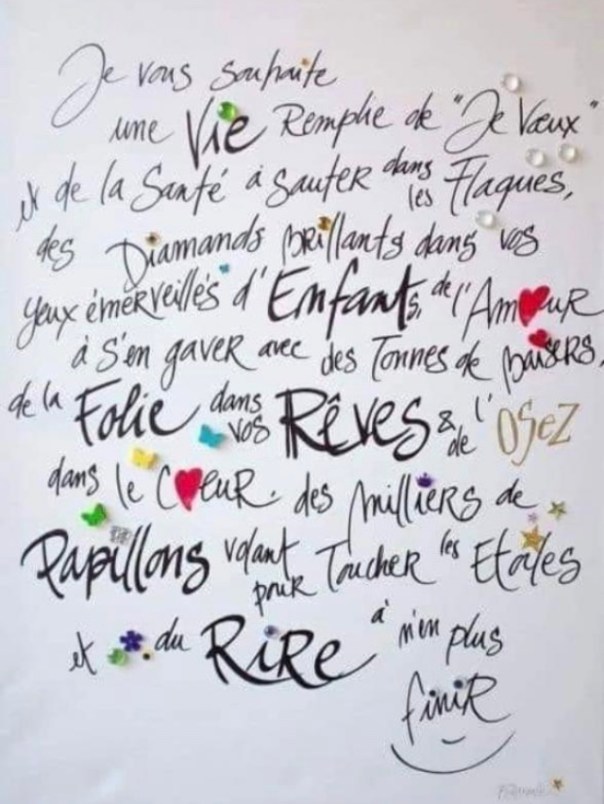 Je vous souhaite
une Vie Remplie de "Je Vœux"
et de la Santé à Sauter dans les Flaques,
des Diamands brillants dans vos
yeux émerveillés d'Enfants, de l'Amour
à S'en gaver avec des Tonnes de baisers,
de la Folie dans vos Rêves & de l'OSez
dans le Cœur. des Milliers de
Papillons volant pour Toucher les Etoiles
et du Rire à n'en plus
finir